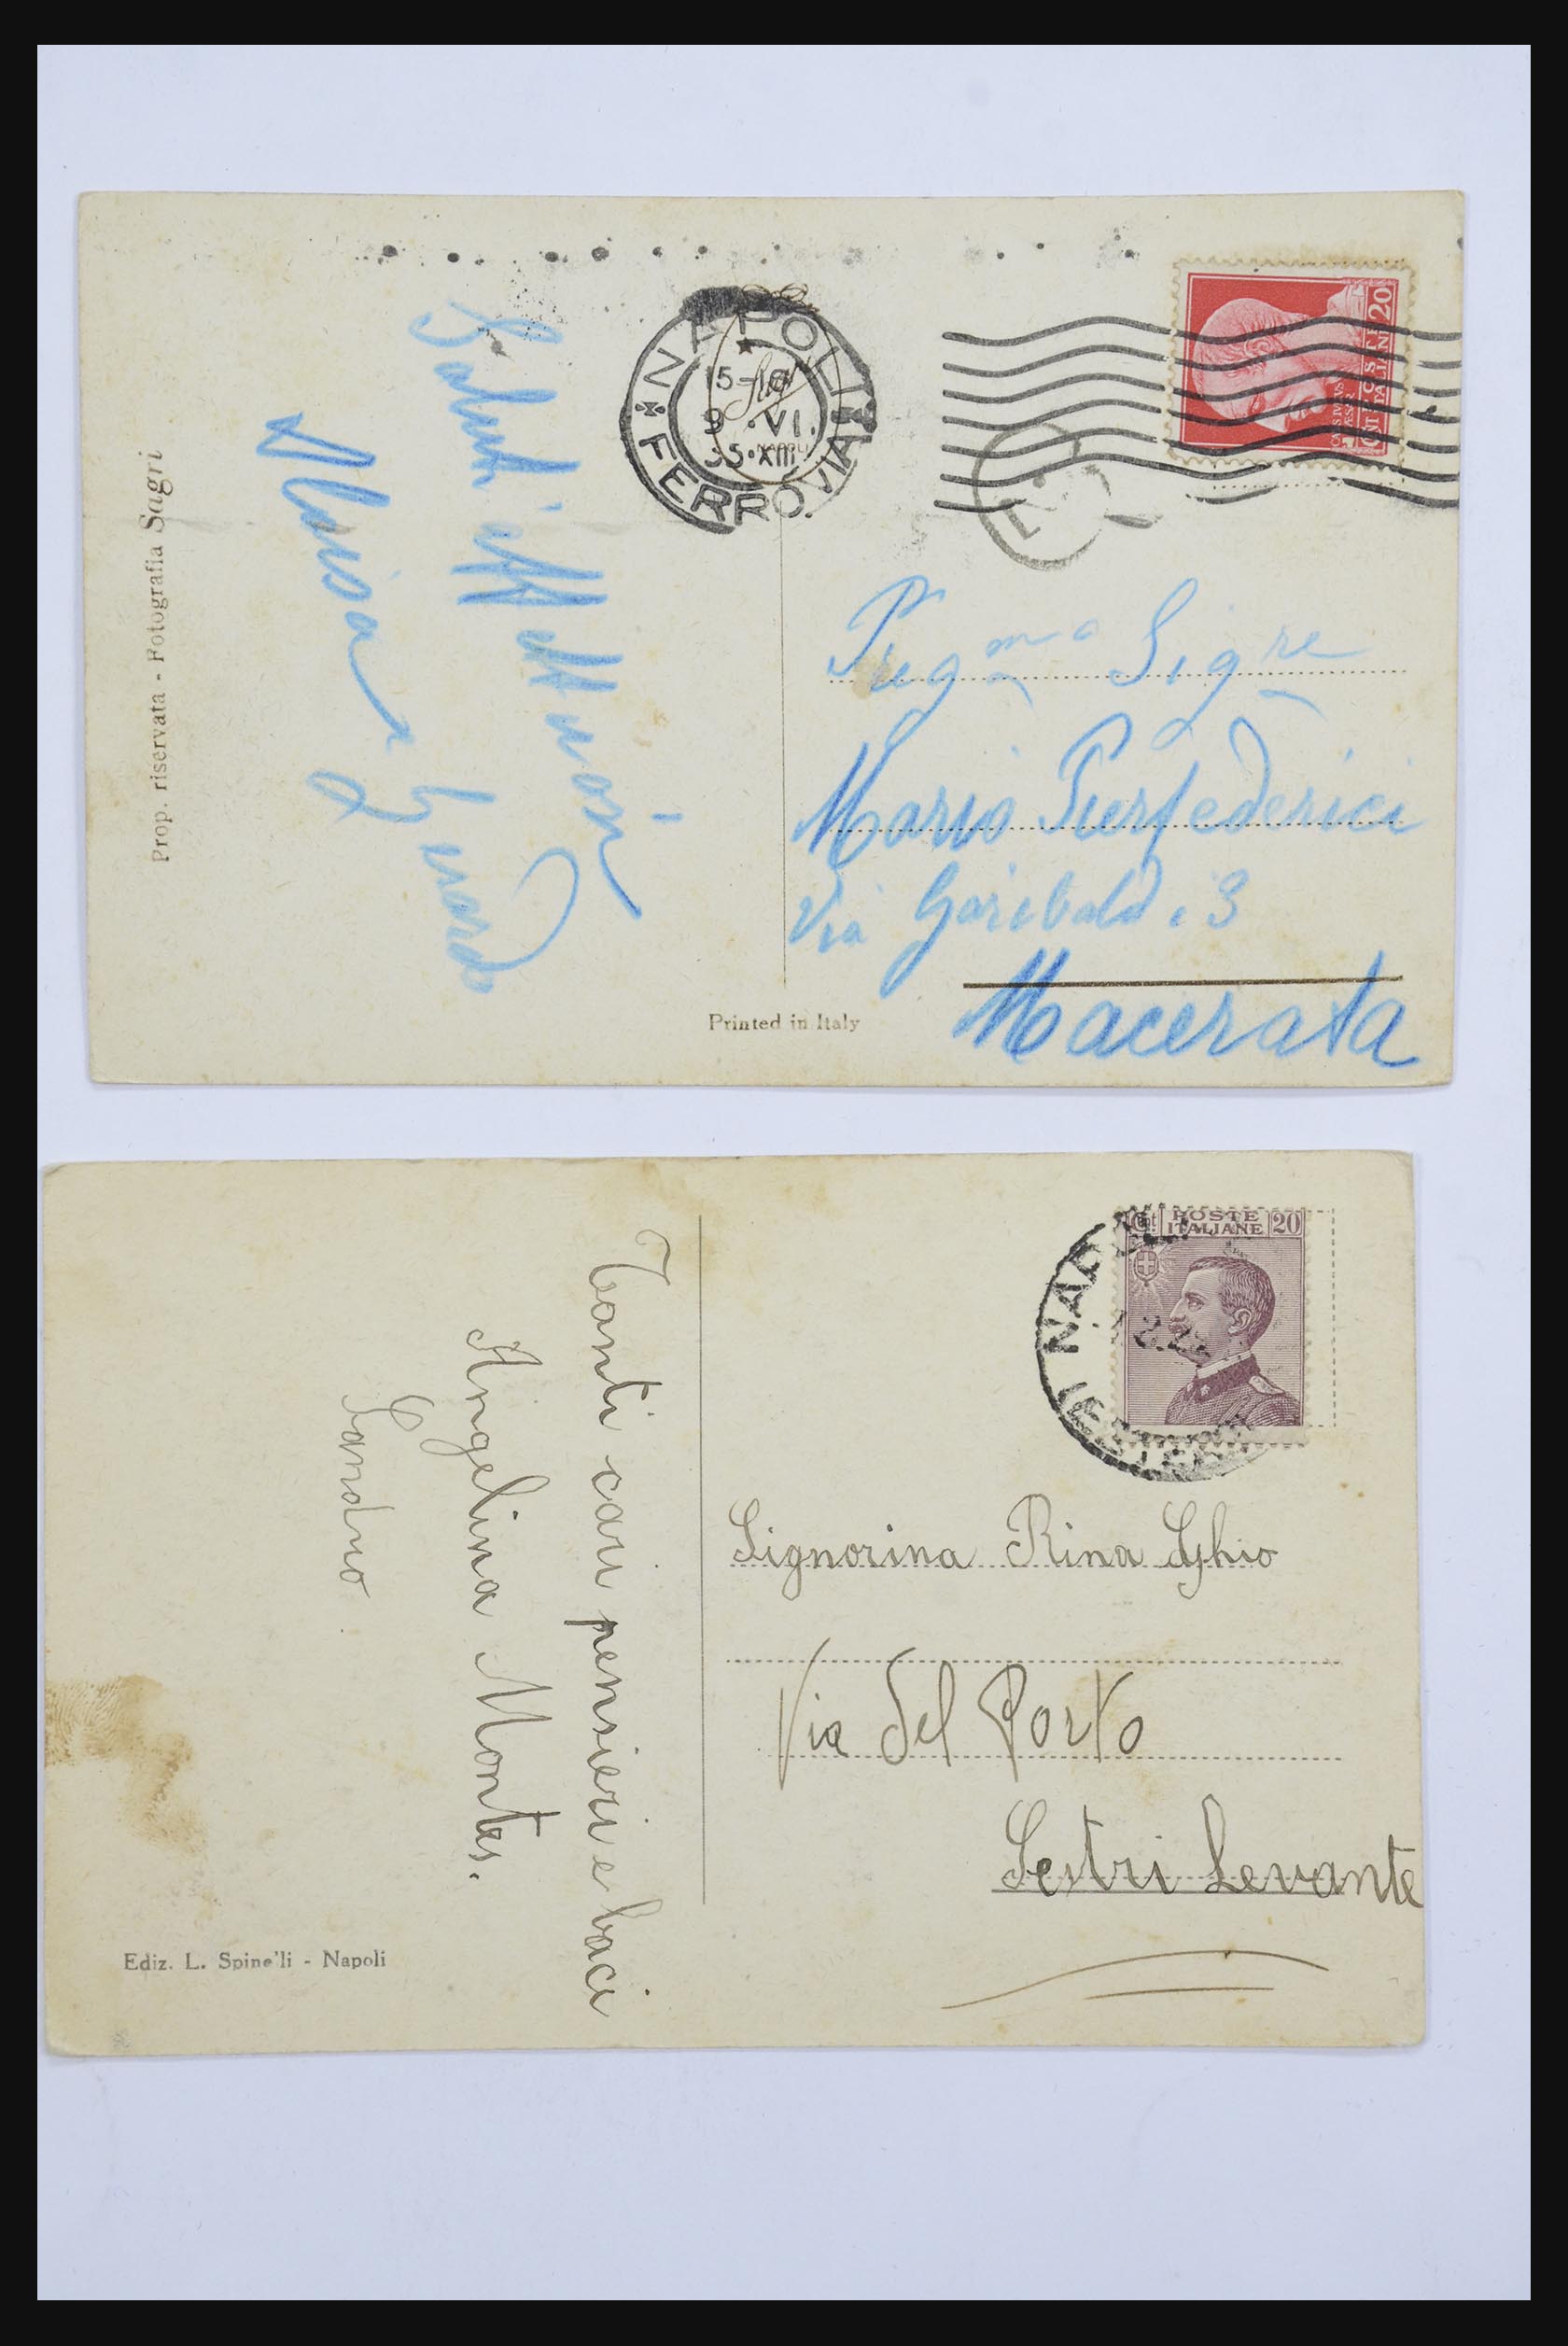 NAPOLI
FERROVIA
15-16
9 · VI.
35 · XIII
POSTE
ITALIANE
20
Saluti affettuosi
Gerardo
Preg.mo Sig.re
Mario Pierfederici
Via Garibaldi 3
Macerata
Prop. riservata - Fotografia Sagri
Printed in Italy
POSTE
ITALIANE
20
NAPOLI
Tanti cari pensieri e baci
Angelina Montes.
Sandro
Signorina Rina Ghio
Via del Porto
Sestri Levante
Ediz. L. Spinelli - Napoli